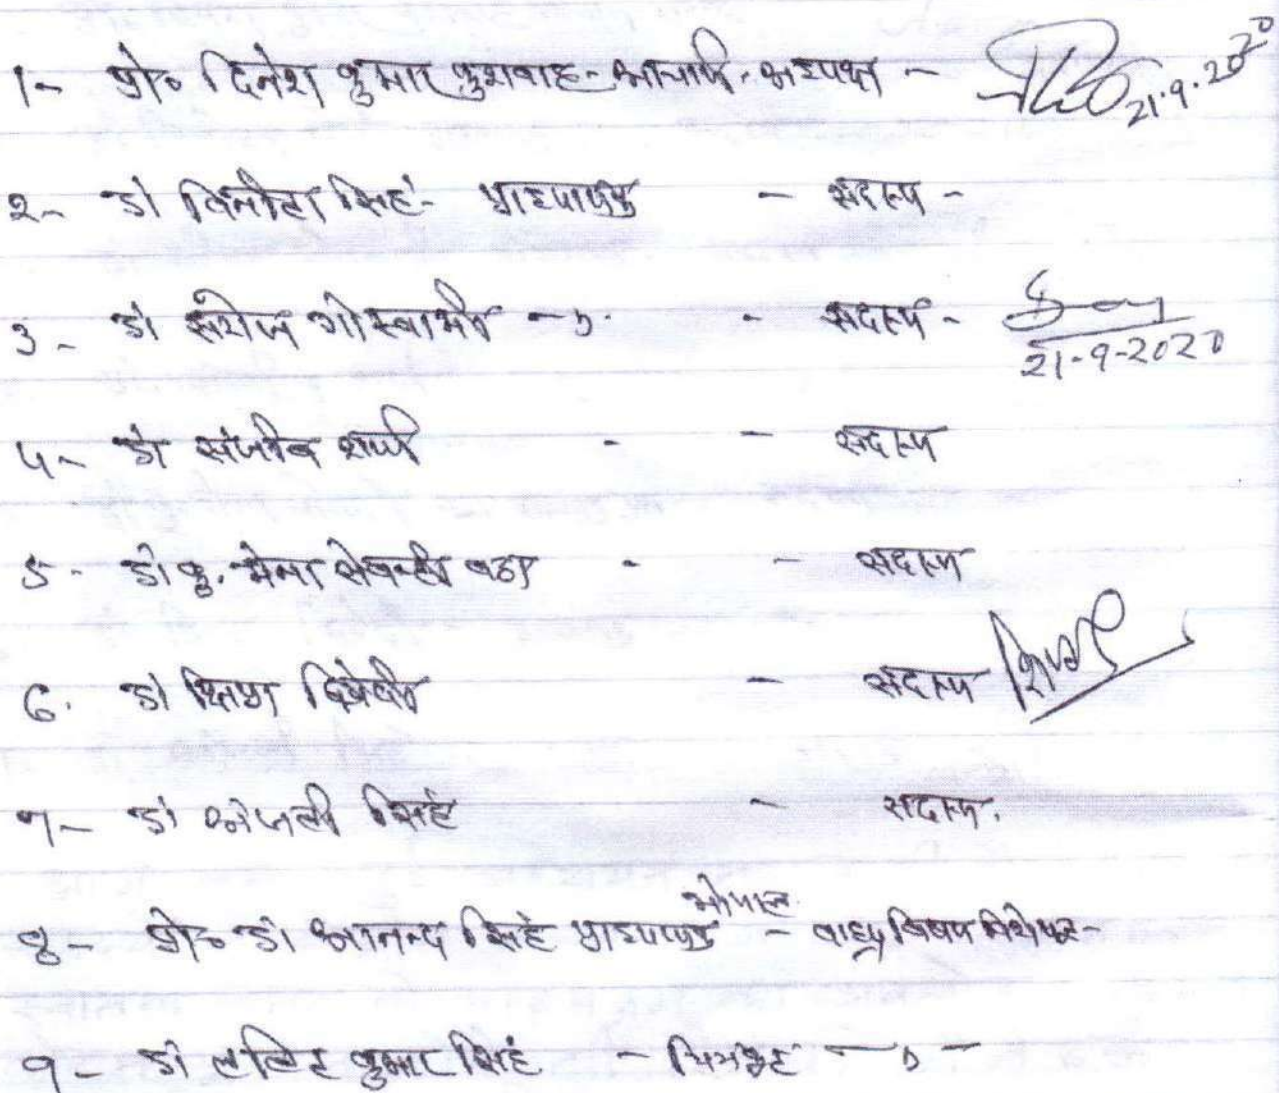 1- प्रो० दिनेश कुमार कुशवाह - आचार्य - अध्यक्ष - 21.9.2020
2- डॉ विनोद सिंह - प्राध्यापक - सदस्य -
3- डॉ सरोज गोस्वामी - ,, - सदस्य - 21-9-2020
4- डॉ संजीव शर्मा - - सदस्य
5- डॉ कु. मेना - - सदस्य
6. डॉ क्षिप्रा द्विवेदी - सदस्य
7- डॉ अंजली सिंह - सदस्य.
भोपाल
8- प्रो० डॉ आनन्द सिंह प्राध्यापक - वाह्य विषय विशेषज्ञ -
9- डॉ ललित कुमार सिंह - चित्रकूट - ,, -